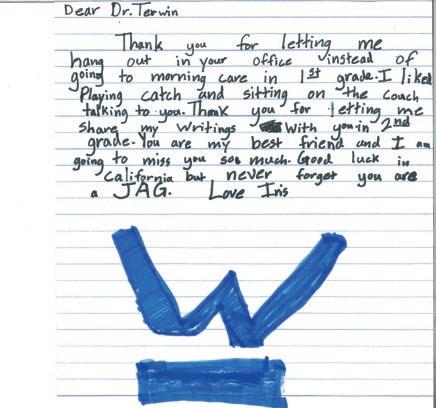 Dear Dr. Terwin
Thank you for letting me
hang out in your office instead of
going to morning care in 1st grade. I liked
Playing catch and sitting on the couch
talking to you. Thank you for letting me
share my writings With you in 2nd
grade. You are my best friend and I am
going to miss you soo much. Good luck in
California but never forget you are
a JAG. Love Iris
W